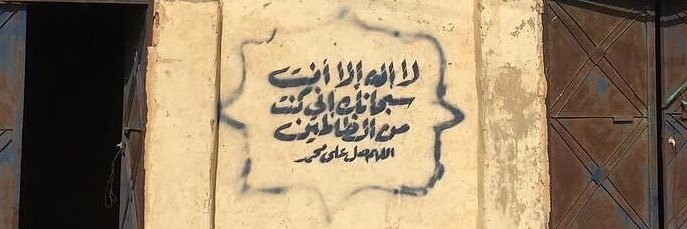 لا اله إلا أنت
سبحانك إني كنت
من الظالمين
اللهم صل على محمد